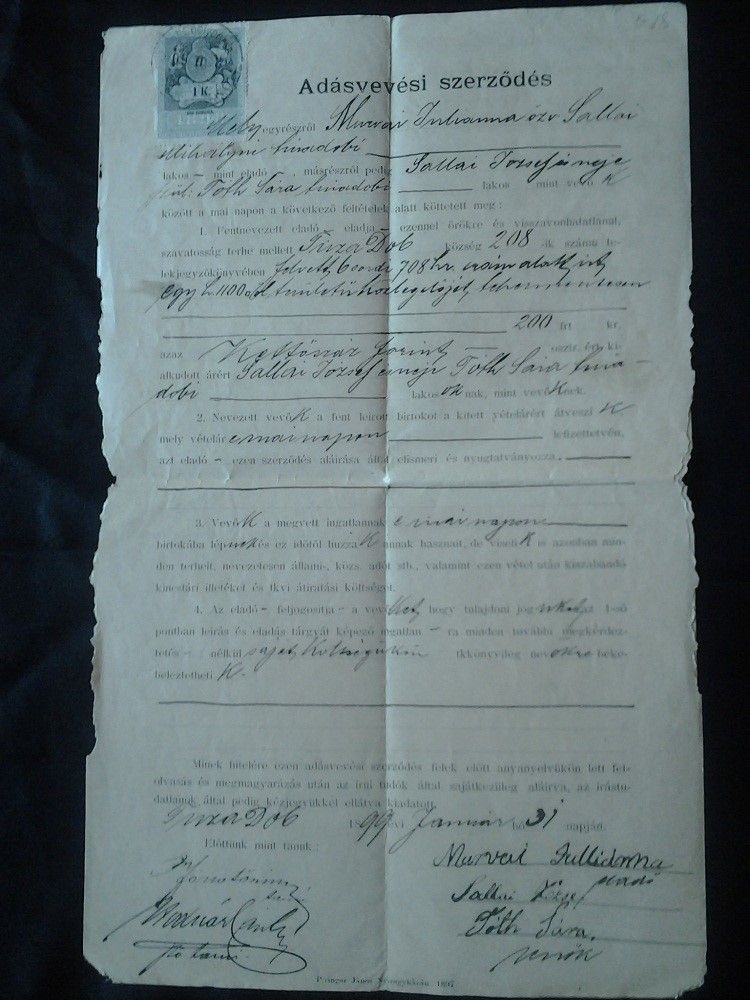 1 K
Adásvevési szerződés
Mely egyrészről Murvai Julianna özv Sallai
Mihályné tiszadobi
lakos – mint eladó –, másrészről pedig Sallai József és neje
szül: Tóth Sára tiszadobi lakos mint vevő K
között a mai napon a következő feltételek alatt köttetett meg:
1. Fentnevezett eladó – eladja – ezennel örökre és visszavonhatatlanul,
szavatosság terhe mellett Tisza Dob község 208 -ik számu te-
lekjegyzőkönyvében felvett 708 hr. alatt irt
egy h. 1100 területű közlegelőjét tehermentesen
200 frt kr,
azaz Kettőszáz forint osztr. ért. ki-
alkudott árért Sallai József és neje Tóth Sára tisza-
dobi lakosoknak, mint vevőKnek.
2. Nevezett vevőK a fent leirott birtokot a kitett vételárért átveszi K
mely vételár e mai napon lefizettetvén,
azt eladó – ezen szerződés aláirása által elismeri és nyugtatványozza.
3. VevőK a megvett ingatlannak e mai napon
birtokába lépnek és ez időtől huzzaK annak hasznait, de viseliK is azonban min-
den terheit, nevezetesen állami-, közs. adót stb., valamint ezen vétel után kiszabandó
kincstári illetéket és tkvi átiratási költséget.
4. Az eladó – feljogositja – a vevőket, hogy tulajdoni jogukat az 1-ső
pontban leirás és eladás tárgyát képező ingatlan – ra minden további megkérdez-
tetés – nélkül saját költségükön tkkönyvileg nevökre beke-
beleztetheti K.
Minek hiteléül ezen adásvevési szerződés felek előtt anyanyelvükön lett fel-
olvasás és megmagyarázás után az irni tudók által sajátkezüleg aláirva, az irástu-
datlanok által pedig kézjegyükkel ellátva kiadatott.
Tisza Dob 1899 évi Január hó 31 napján.
Előttünk mint tanuk:
Murvai Jullianna
eladó
Sallai József
Tóth Sára
vevők
Pringer János Nyiregyházán 1897